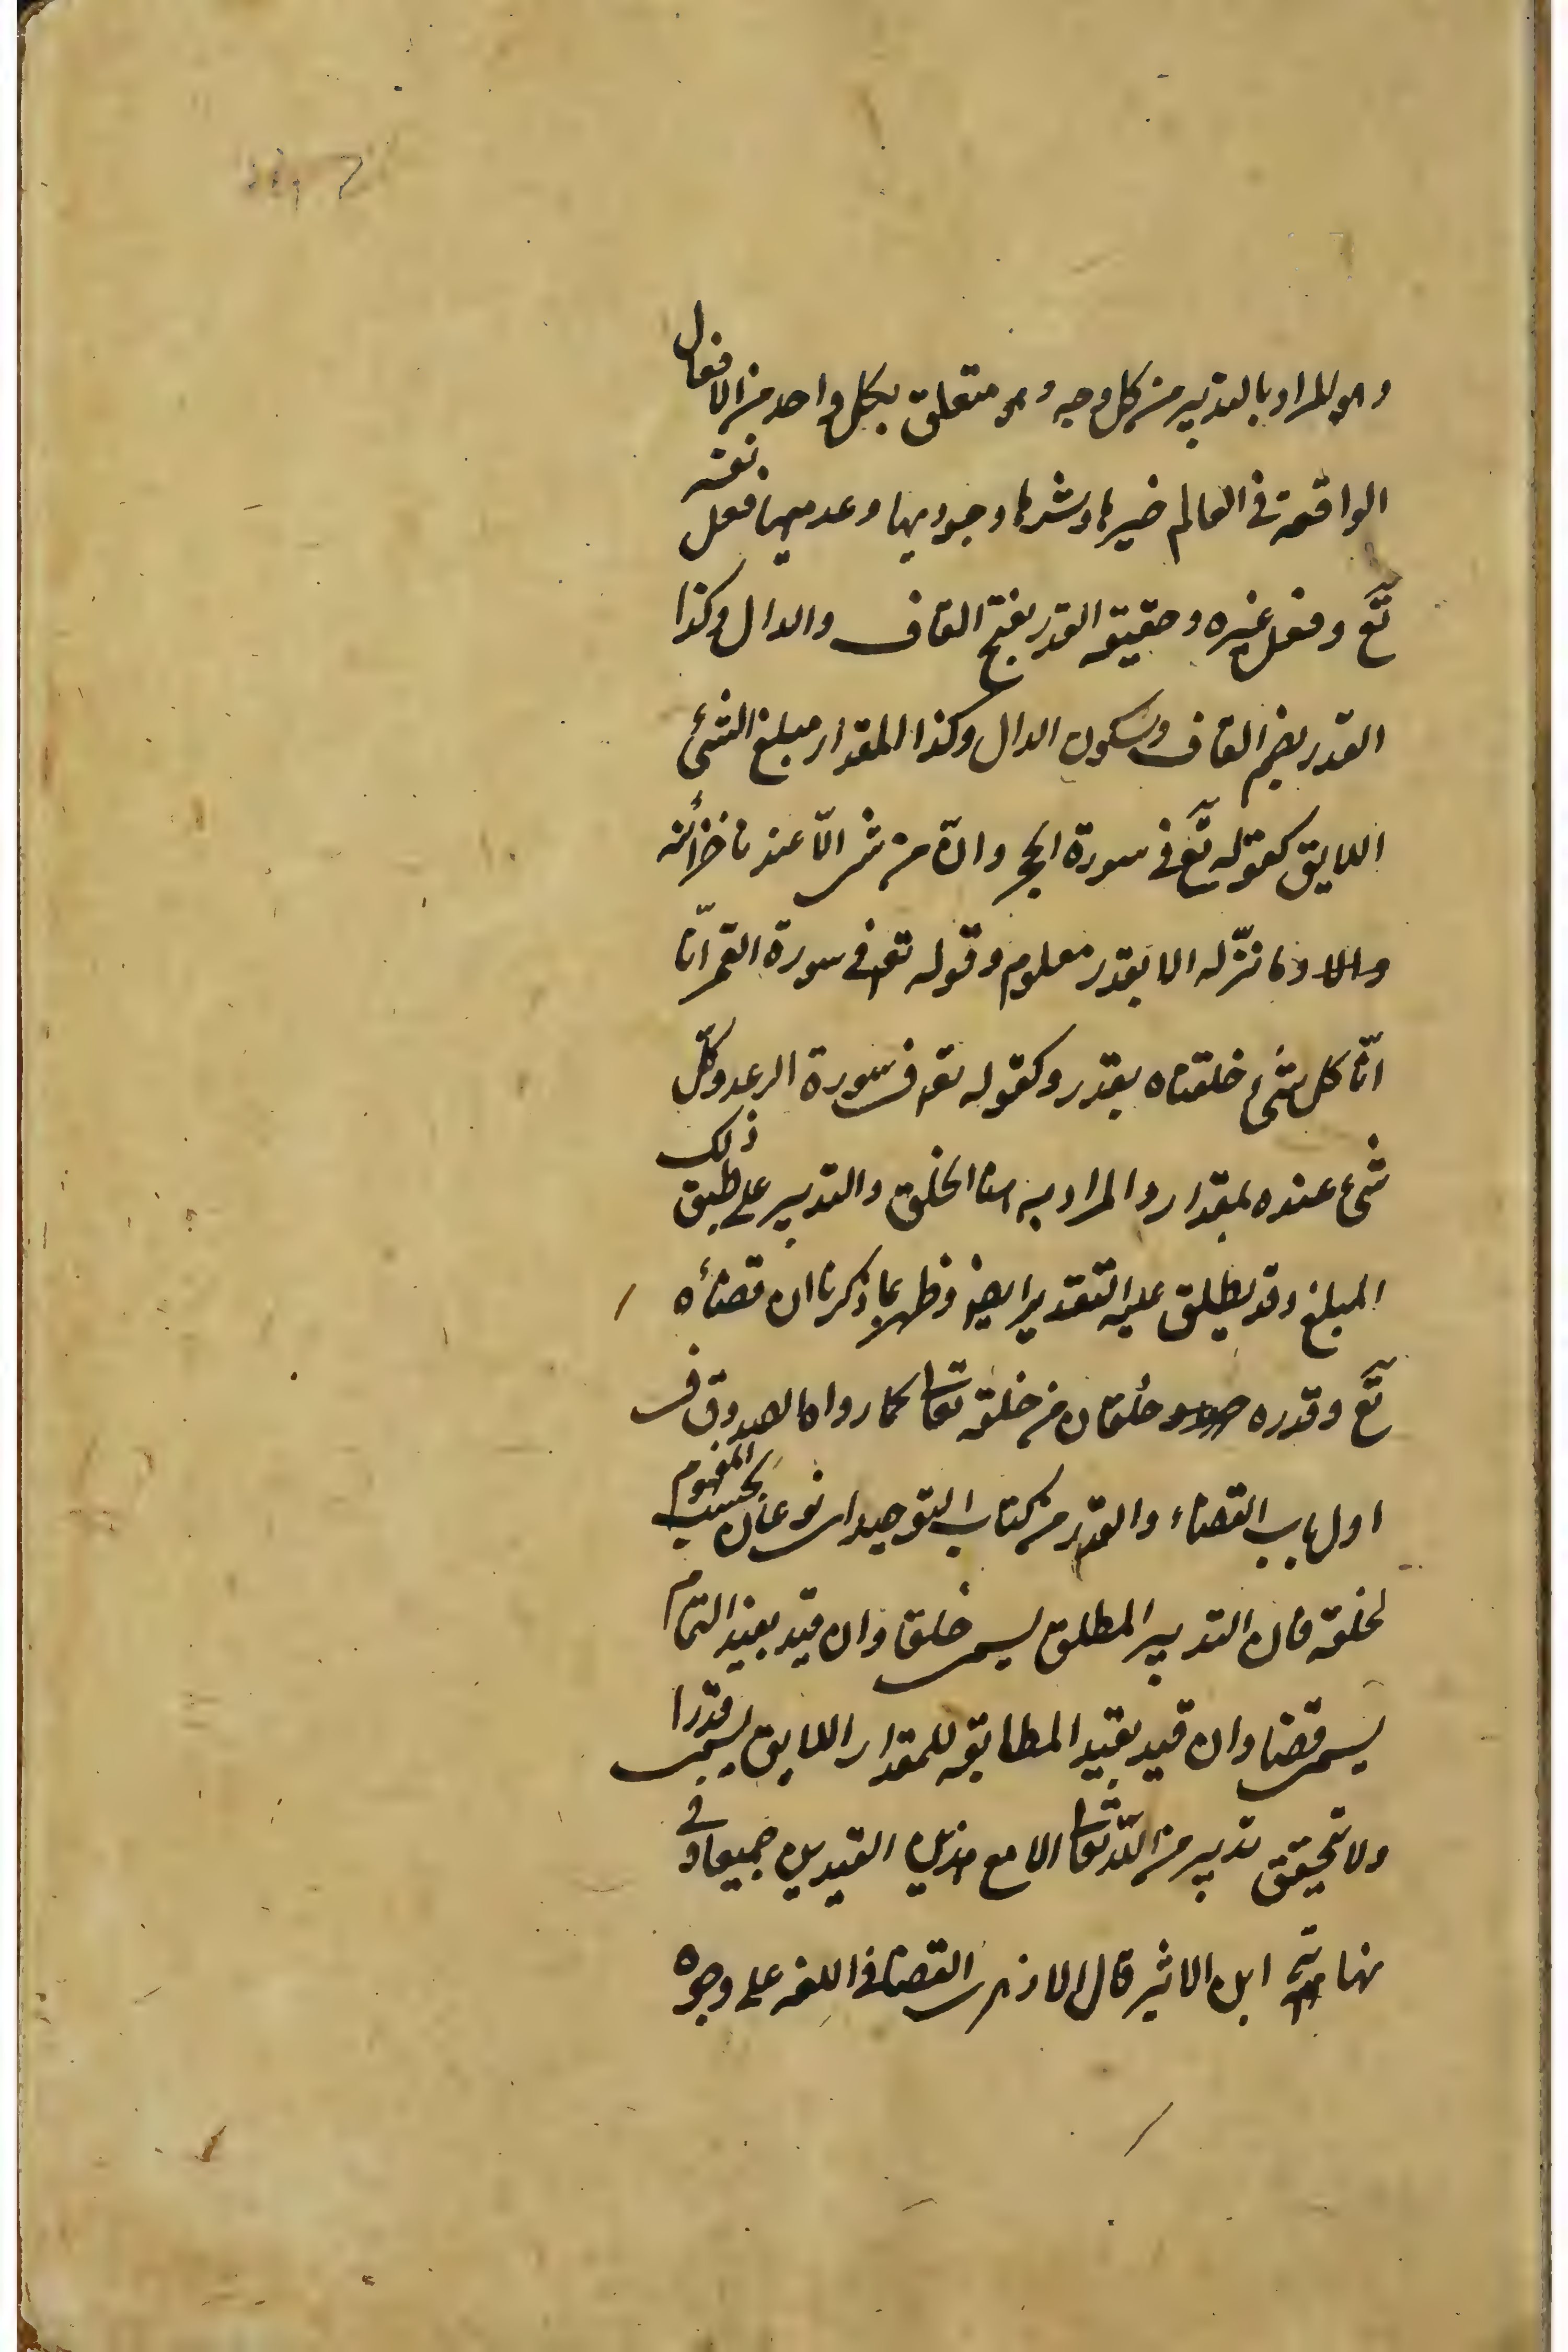 وهو المراد بالتدبير من كل وجه وهو متعلق بكل واحد من الافعال
الواقعة في العالم خيرها وشرها وجوديها وعدميها فعل نفسه
تع وفعل غيره وحقيقة القدر بفتح القاف والدال وكذا
القدر بضم القاف وسكون الدال وكذا المقدار مبلغ الشئ
اللايق كقوله تع في سورة الحجر وان من شئ الّا عندنا خزائنه
وما ننزّله الا بقدر معلوم وقوله تع في سورة القمر انّا
انّا كل شئ خلقناه بقدر وكقوله تع في سورة الرعد وكلّ
شئ عنده بمقدار والمراد به هنا الخلق والتدبير على طبق ذلك
المبلغ وقد يطلق عليه التقدير ايضا وظهر بما ذكرنا ان قضائه
تع وقدره خلقان من خلقه تعالى كما رواه الصدوق في
اول باب القضاء والقدر من كتاب التوحيد اي نوعان بحسب المفهوم
لخلقه فان التدبير المطلق يسمى خلقا وان قيد بقيد التمام
يسمى قضا وان قيد بقيد المطابقة للمقدار اللايق يسمى قدرا
ولا تحقق تدبير من الله تعالى الا مع هذين القيدين جميعا وفي
نهاية ابن الاثير قال الازهري القضا في اللغة على وجوه